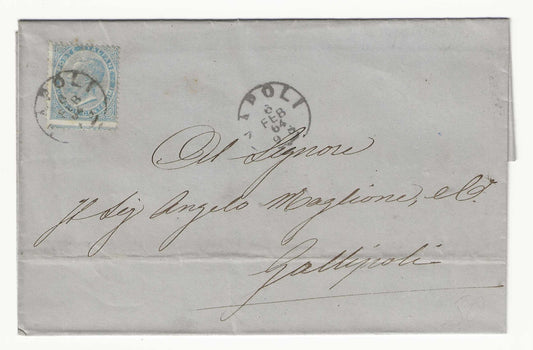 POSTE ITALIANE
NAPOLI
NAPOLI
6
FEB
64
Al Signore
Il Sig Angelo Maglione, e C.
Gallipoli